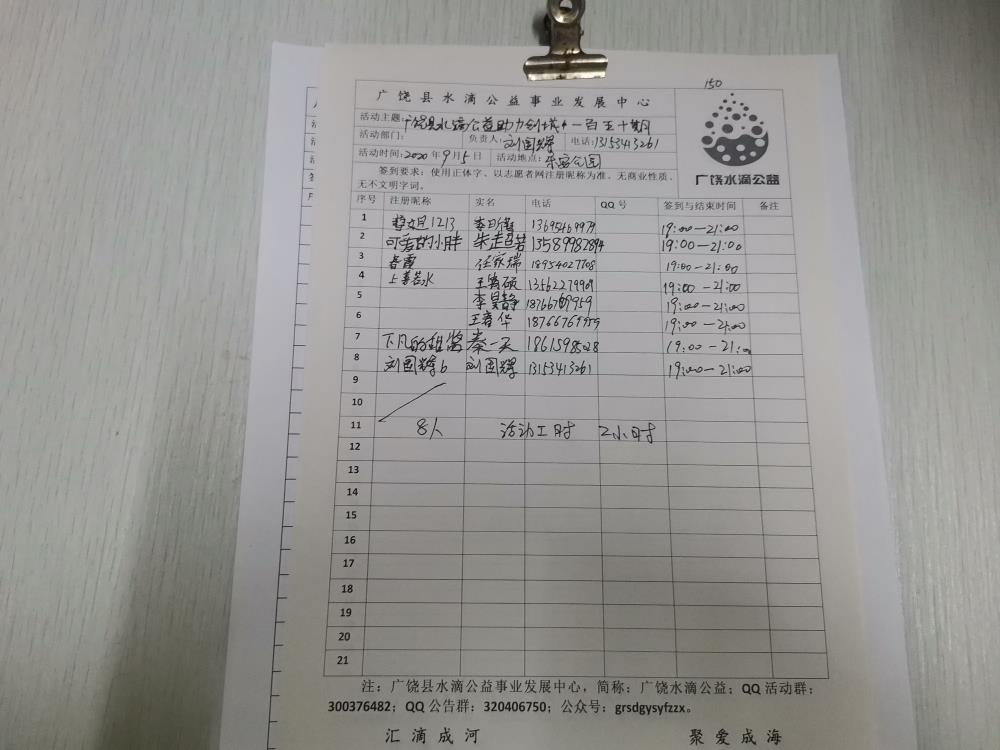 150
广饶县水滴公益事业发展中心
活动主题：广饶县水滴公益助力创城 一百五十期
活动部门： 负责人：刘国辉 电话：13153413261
活动时间：2020年9月5日 活动地点：乐安公园
签到要求：使用正体字、以志愿者网注册昵称为准、无商业性质、
无不文明字词。
广饶水滴公益
序号 注册昵称 实名 电话 QQ号 签到与结束时间 备注
1 1213 13695469979 19:00—21:00
2 可爱的小胖 19:00—21:00
3 春雷 任家瑞 18954027708 19:00—21:00
4 上善若水 13562279909 19:00—21:00
5 李昊静 19:00—21:00
6 王春华 18766769959 19:00—21:00
7 下凡的 秦一天 19:00—21:00
8 刘国辉6 刘国辉 13153413261 19:00—21:00
9
10
11 8人 活动工时 2小时
12
13
14
15
16
17
18
19
20
21
注：广饶县水滴公益事业发展中心，简称：广饶水滴公益；QQ活动群：
300376482；QQ公告群：320406750；公众号：grsdgysyfzzx。
汇滴成河 聚爱成海